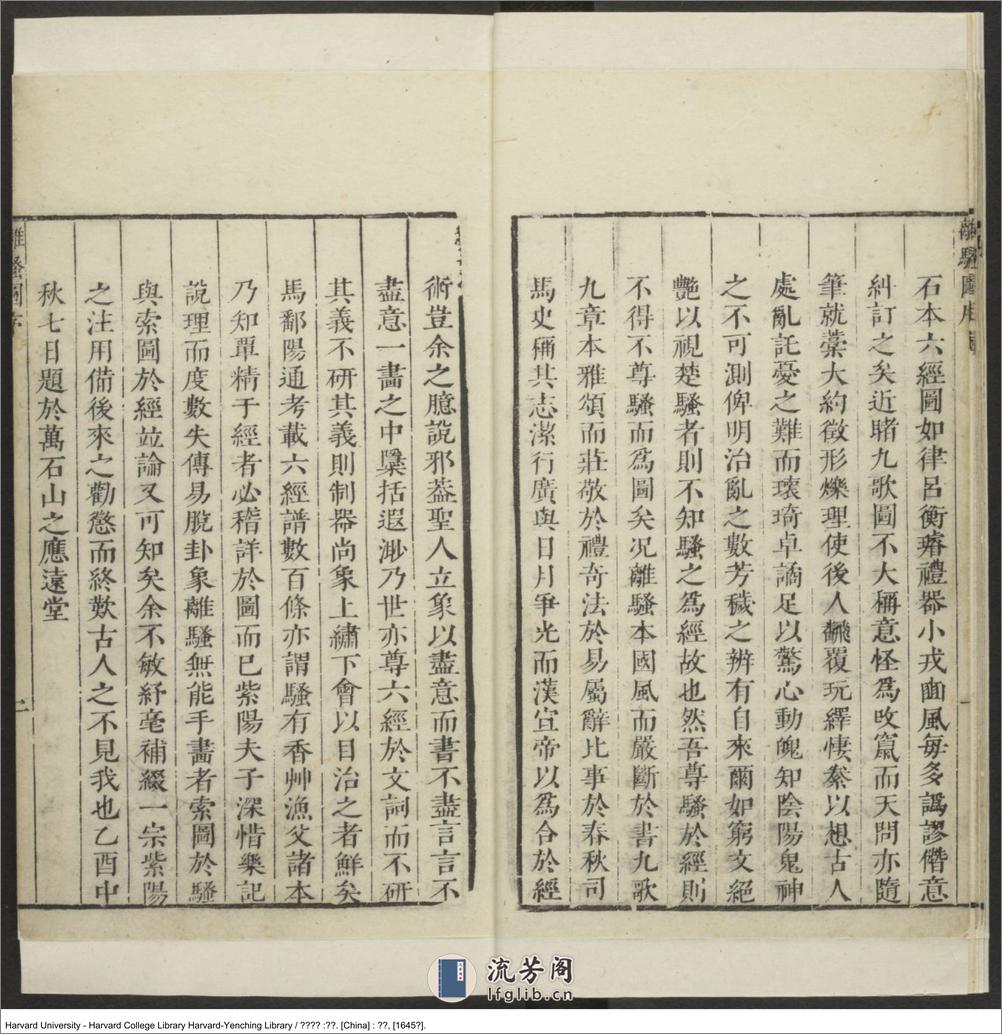 離騷圖序
石本六經圖如律呂衡瘠禮器小戎面風每多譌謬僭意
糾訂之矣近睹九歌圖不大稱意怪爲攺竄而天問亦隨
筆就藁大約徵形爍理使後人飜覆玩繹悽㮤以想古人
處亂託憂之難而瓌琦卓譎足以驚心動魄知陰陽鬼神
之不可測俾明治亂之數芳穢之辨有自來爾如窮文絕
艷以視楚騷者則不知騷之爲經故也然吾尊騷於經則
不得不尊騷而爲圖矣况離騷本國風而嚴斷於書九歌
九章本雅頌而莊敬於禮奇法於易屬辭比事於春秋司
馬史稱其志潔行廣與日月爭光而漢宣帝以爲合於經
術豈余之臆說邪葢聖人立象以盡意而書不盡言言不
盡意一畫之中檃括遐渺乃世亦尊六經於文詞而不研
其義不研其義則制器尚象上繡下會以目治之者鮮矣
馬鄱陽通考載六經譜數百條亦謂騷有香艸漁父諸本
乃知單精于經者必稽詳於圖而已紫陽夫子深惜樂記
說理而度數失傳易脫卦象離騷無能手畫者索圖於騷
與索圖於經竝論又可知矣余不敏紓毫補綴一宗紫陽
之注用備後來之勸懲而終歎古人之不見我也乙酉中
秋七日題於萬石山之應遠堂
離騷圖序
流芳阁
lfglib.cn
Harvard University - Harvard College Library Harvard-Yenching Library / ???? :??. [China] : ??, [1645?].